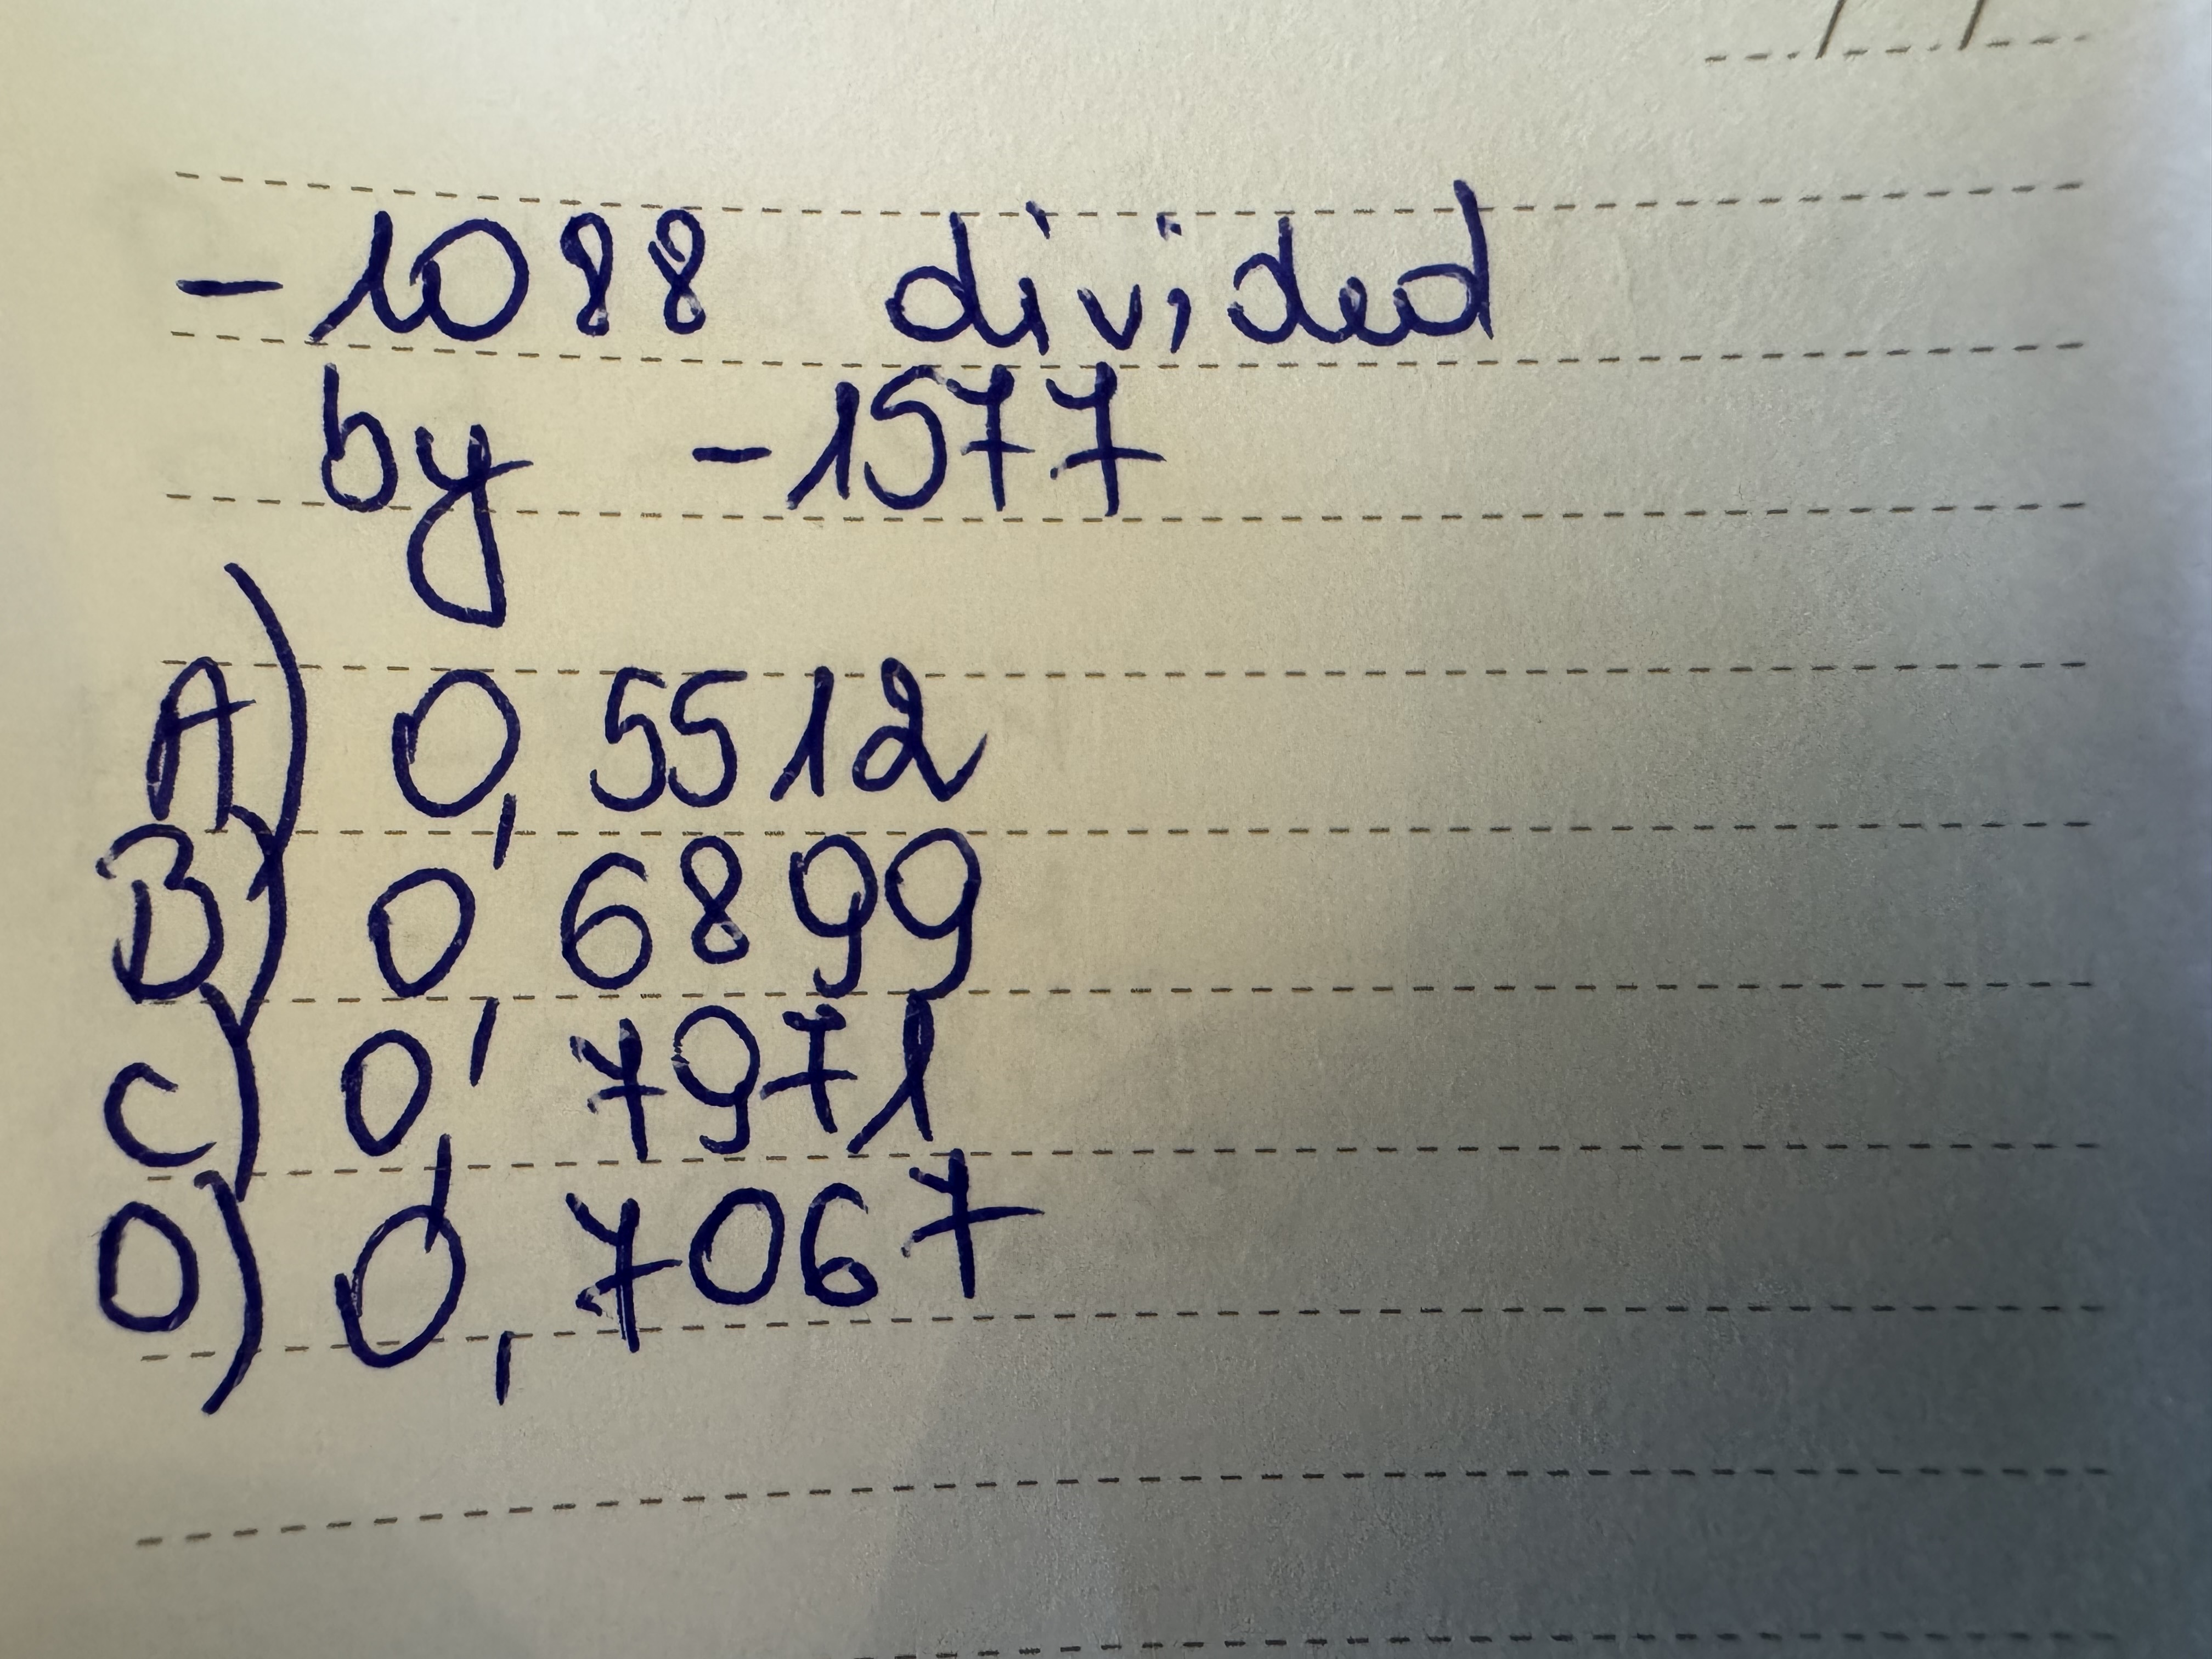 -1088 divided
by -1577
A) 0, 5512
B) 0, 6899
C) 0, 7971
D) 0, 7067